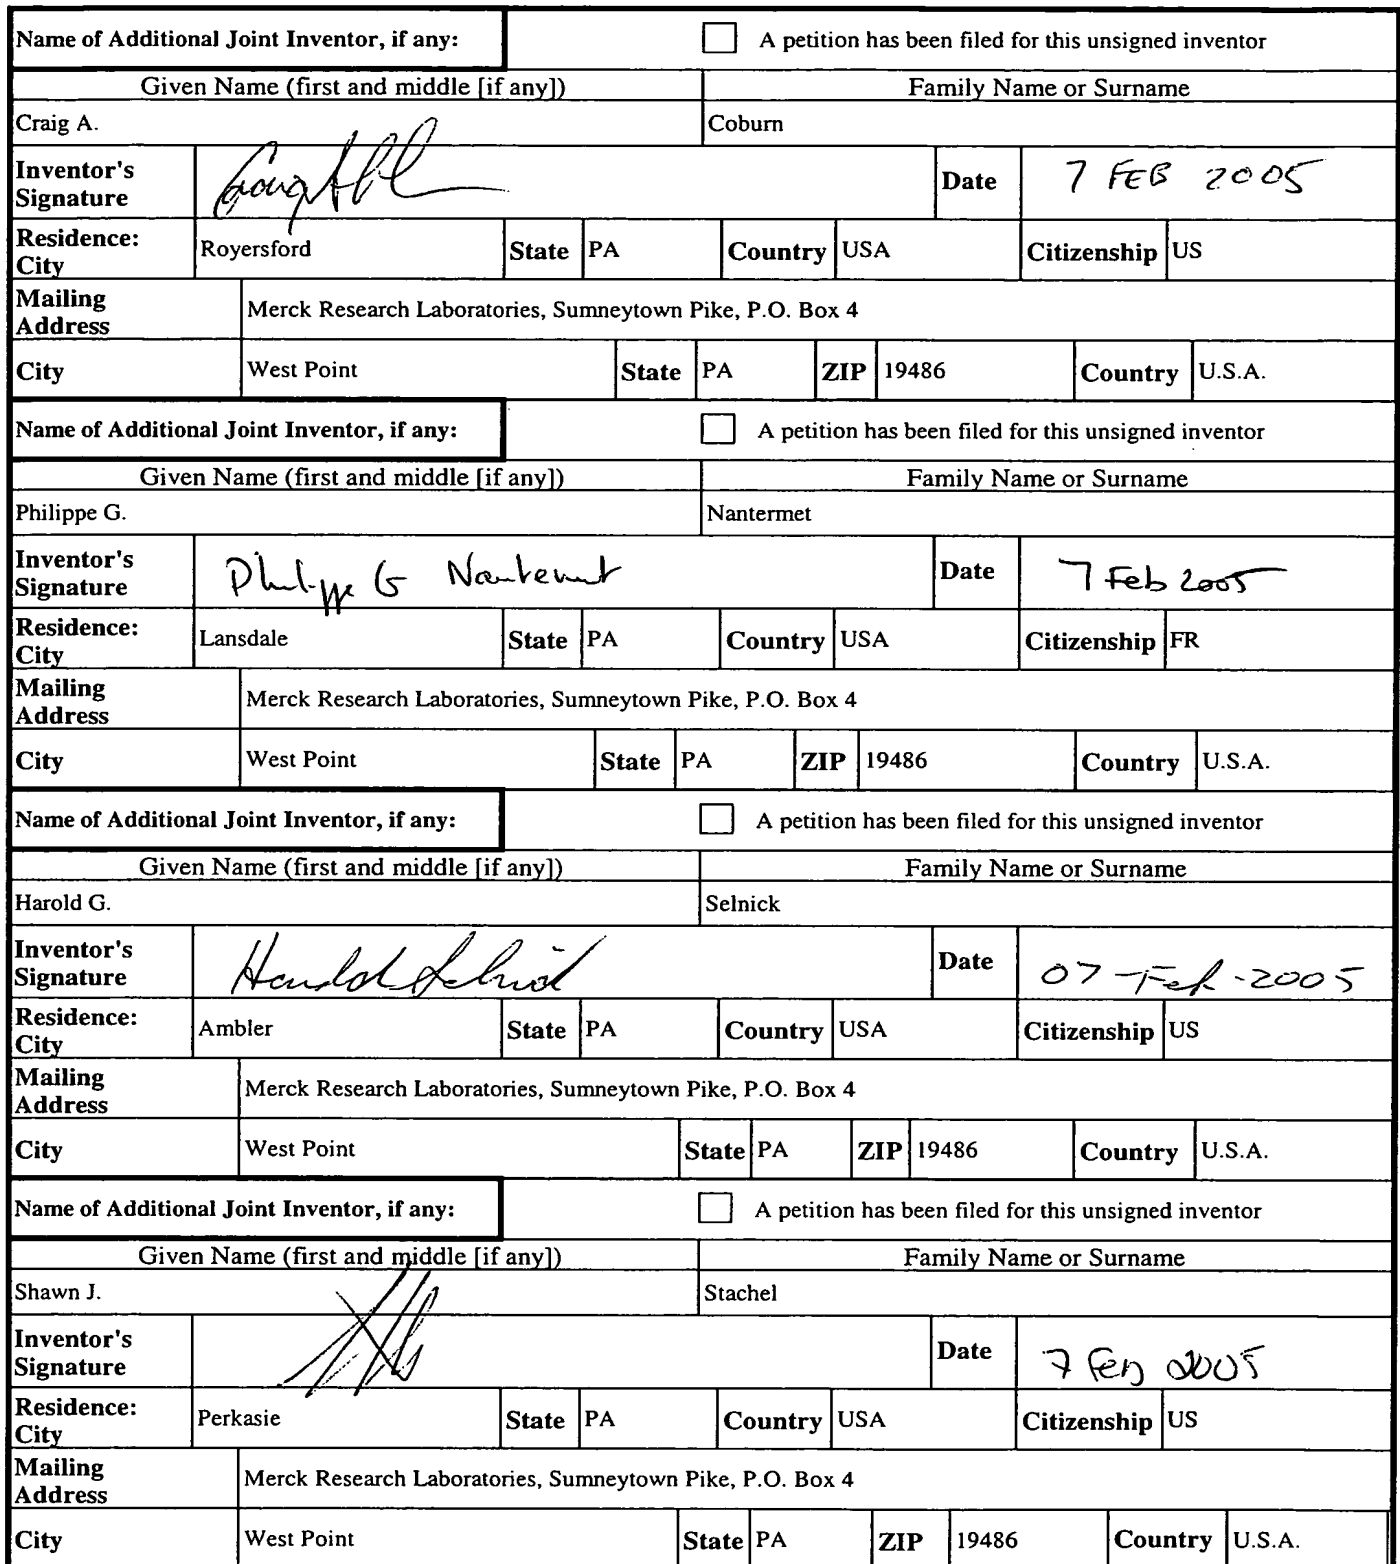 Name of Additional Joint Inventor, if any: A petition has been filed for this unsigned inventor
Given Name (first and middle [if any]) Family Name or Surname
Craig A. Coburn
Inventor's Signature Date 7 FEB 2005
Residence: City Royersford State PA Country USA Citizenship US
Mailing Address Merck Research Laboratories, Sumneytown Pike, P.O. Box 4
City West Point State PA ZIP 19486 Country U.S.A.
Name of Additional Joint Inventor, if any: A petition has been filed for this unsigned inventor
Given Name (first and middle [if any]) Family Name or Surname
Philippe G. Nantermet
Inventor's Signature Philippe G Nantermet Date 7 Feb 2005
Residence: City Lansdale State PA Country USA Citizenship FR
Mailing Address Merck Research Laboratories, Sumneytown Pike, P.O. Box 4
City West Point State PA ZIP 19486 Country U.S.A.
Name of Additional Joint Inventor, if any: A petition has been filed for this unsigned inventor
Given Name (first and middle [if any]) Family Name or Surname
Harold G. Selnick
Inventor's Signature Harold Selnick Date 07-Feb-2005
Residence: City Ambler State PA Country USA Citizenship US
Mailing Address Merck Research Laboratories, Sumneytown Pike, P.O. Box 4
City West Point State PA ZIP 19486 Country U.S.A.
Name of Additional Joint Inventor, if any: A petition has been filed for this unsigned inventor
Given Name (first and middle [if any]) Family Name or Surname
Shawn J. Stachel
Inventor's Signature Date 7 Feb 2005
Residence: City Perkasie State PA Country USA Citizenship US
Mailing Address Merck Research Laboratories, Sumneytown Pike, P.O. Box 4
City West Point State PA ZIP 19486 Country U.S.A.